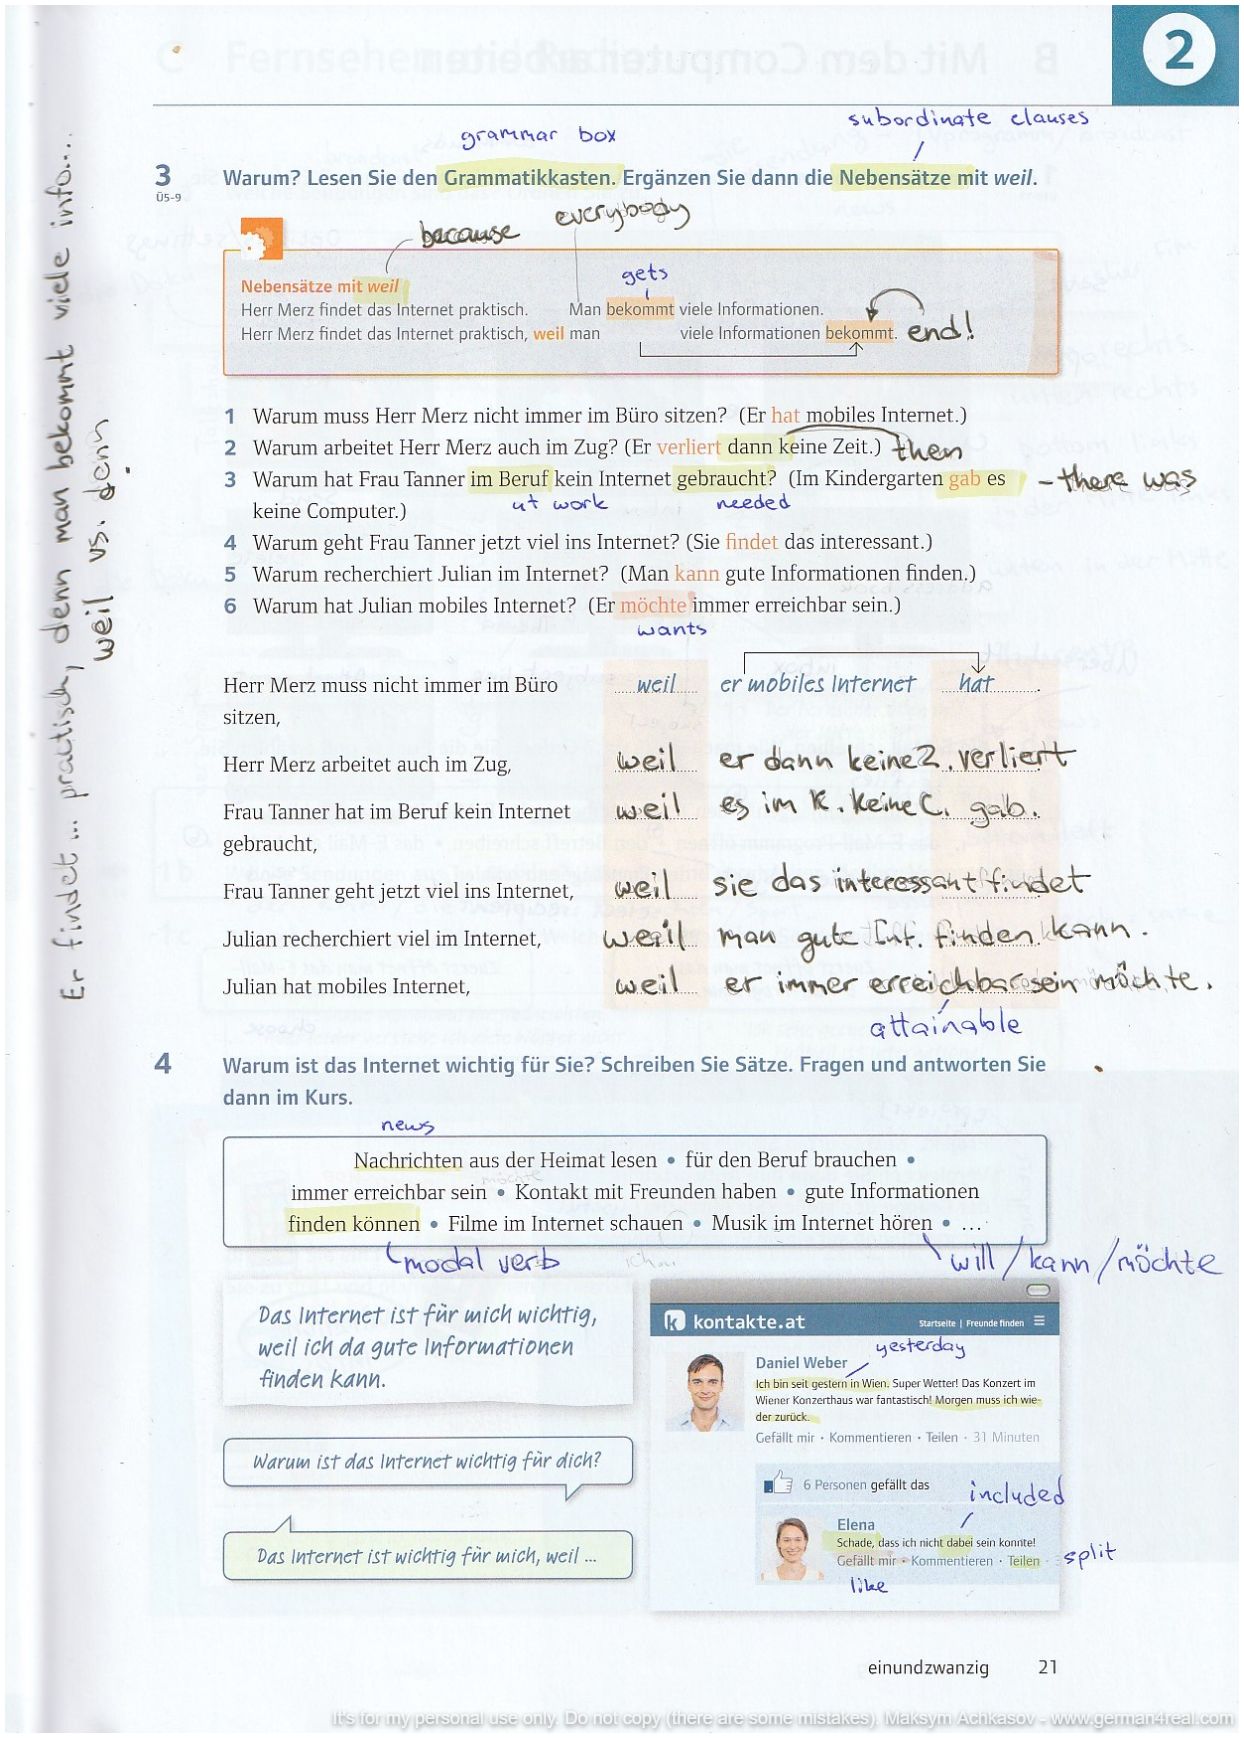 2
subordinate clauses
grammar box
3 Warum? Lesen Sie den Grammatikkasten. Ergänzen Sie dann die Nebensätze mit weil.
Ü5-9
because everybody
gets
Nebensätze mit weil
Herr Merz findet das Internet praktisch. Man bekommt viele Informationen.
Herr Merz findet das Internet praktisch, weil man viele Informationen bekommt. end!
1 Warum muss Herr Merz nicht immer im Büro sitzen? (Er hat mobiles Internet.)
2 Warum arbeitet Herr Merz auch im Zug? (Er verliert dann keine Zeit.) then
3 Warum hat Frau Tanner im Beruf kein Internet gebraucht? (Im Kindergarten gab es - there was
keine Computer.) at work needed
4 Warum geht Frau Tanner jetzt viel ins Internet? (Sie findet das interessant.)
5 Warum recherchiert Julian im Internet? (Man kann gute Informationen finden.)
6 Warum hat Julian mobiles Internet? (Er möchte immer erreichbar sein.)
wants
Herr Merz muss nicht immer im Büro weil er mobiles Internet hat.
sitzen,
Herr Merz arbeitet auch im Zug, weil er dann keine Z. verliert
Frau Tanner hat im Beruf kein Internet weil es im K. keine C. gab.
gebraucht,
Frau Tanner geht jetzt viel ins Internet, weil sie das interessant findet
Julian recherchiert viel im Internet, weil man gute Inf. finden kann.
Julian hat mobiles Internet, weil er immer erreichbar sein möchte.
attainable
Er findet ... practisch, denn man bekommt viele info...
weil vs. denn
4 Warum ist das Internet wichtig für Sie? Schreiben Sie Sätze. Fragen und antworten Sie
dann im Kurs.
news
Nachrichten aus der Heimat lesen • für den Beruf brauchen •
immer erreichbar sein • Kontakt mit Freunden haben • gute Informationen
finden können • Filme im Internet schauen • Musik im Internet hören • ...
modal verb will/kann/möchte
Das Internet ist für mich wichtig,
weil ich da gute Informationen
finden kann.
Warum ist das Internet wichtig für dich?
Das Internet ist wichtig für mich, weil ...
k kontakte.at Startseite | Freunde finden
yesterday
Daniel Weber
Ich bin seit gestern in Wien. Super Wetter! Das Konzert im
Wiener Konzerthaus war fantastisch! Morgen muss ich wie-
der zurück.
Gefällt mir · Kommentieren · Teilen · 31 Minuten
6 Personen gefällt das
included
Elena
Schade, dass ich nicht dabei sein konnte!
Gefällt mir · Kommentieren · Teilen · split
like
einundzwanzig 21
It's for my personal use only. Do not copy (there are some mistakes). Maksym Achkasov - www.german4real.com